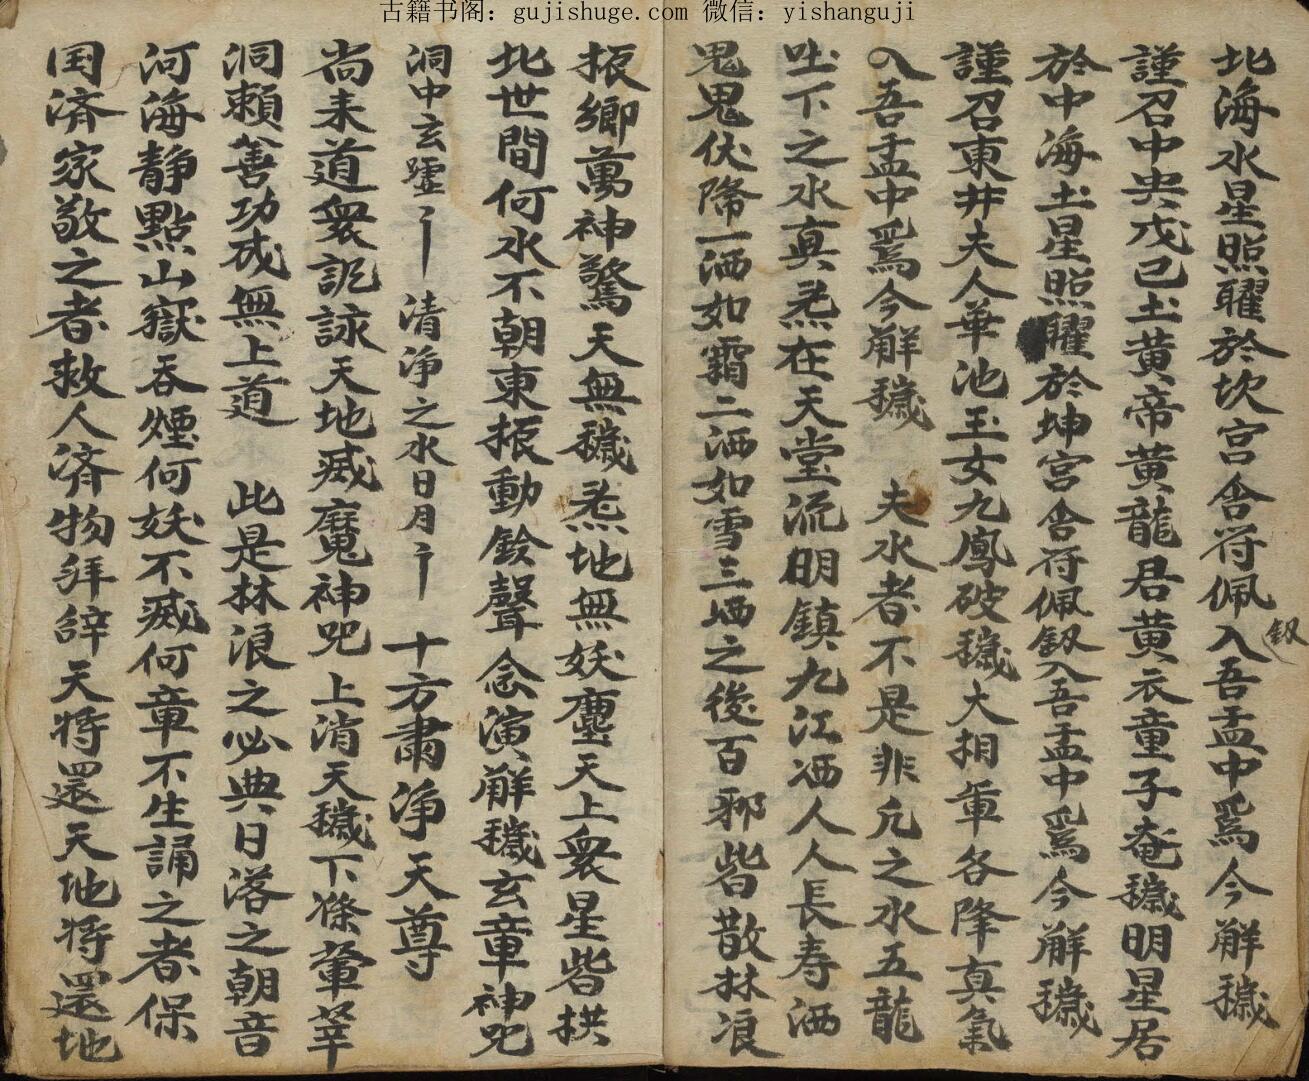 古籍书阁：gujishuge.com 微信：yishanguji
北海水星照耀於坎宫含符佩釼入吾盂中爲今解穢
謹召中央戊己土黄帝黄龍君黄衣童子奄穢明星居
於中海土星照耀於坤宫含符佩釼入吾盂中爲今解穢
謹召東井夫人華池玉女九鳳破穢大将軍各降真氣
入吾盂中爲今解穢 夫水者不是非凢之水五龍
吐下之水真炁在天堂流明鎮九江洒人人長寿洒
鬼鬼伏降一洒如霜二洒如雪三洒之後百邪皆散林浪
振鄉萬神驚天無穢炁地無妖塵天上衆星皆拱
北世間何水不朝東振動鈴聲念演解穢玄章神咒
洞中玄虚 清净之水日月 十方肅净天尊
尚来道衆諷詠天地滅魔神咒上消天穢下滌葷莘
洞賴善功成無上道 此是林浪之必典日落之朝音
河海静點山嶽吞煙何妖不滅何章不生誦之者保
国済家敬之者救人済物拜辞天将還天地将還地